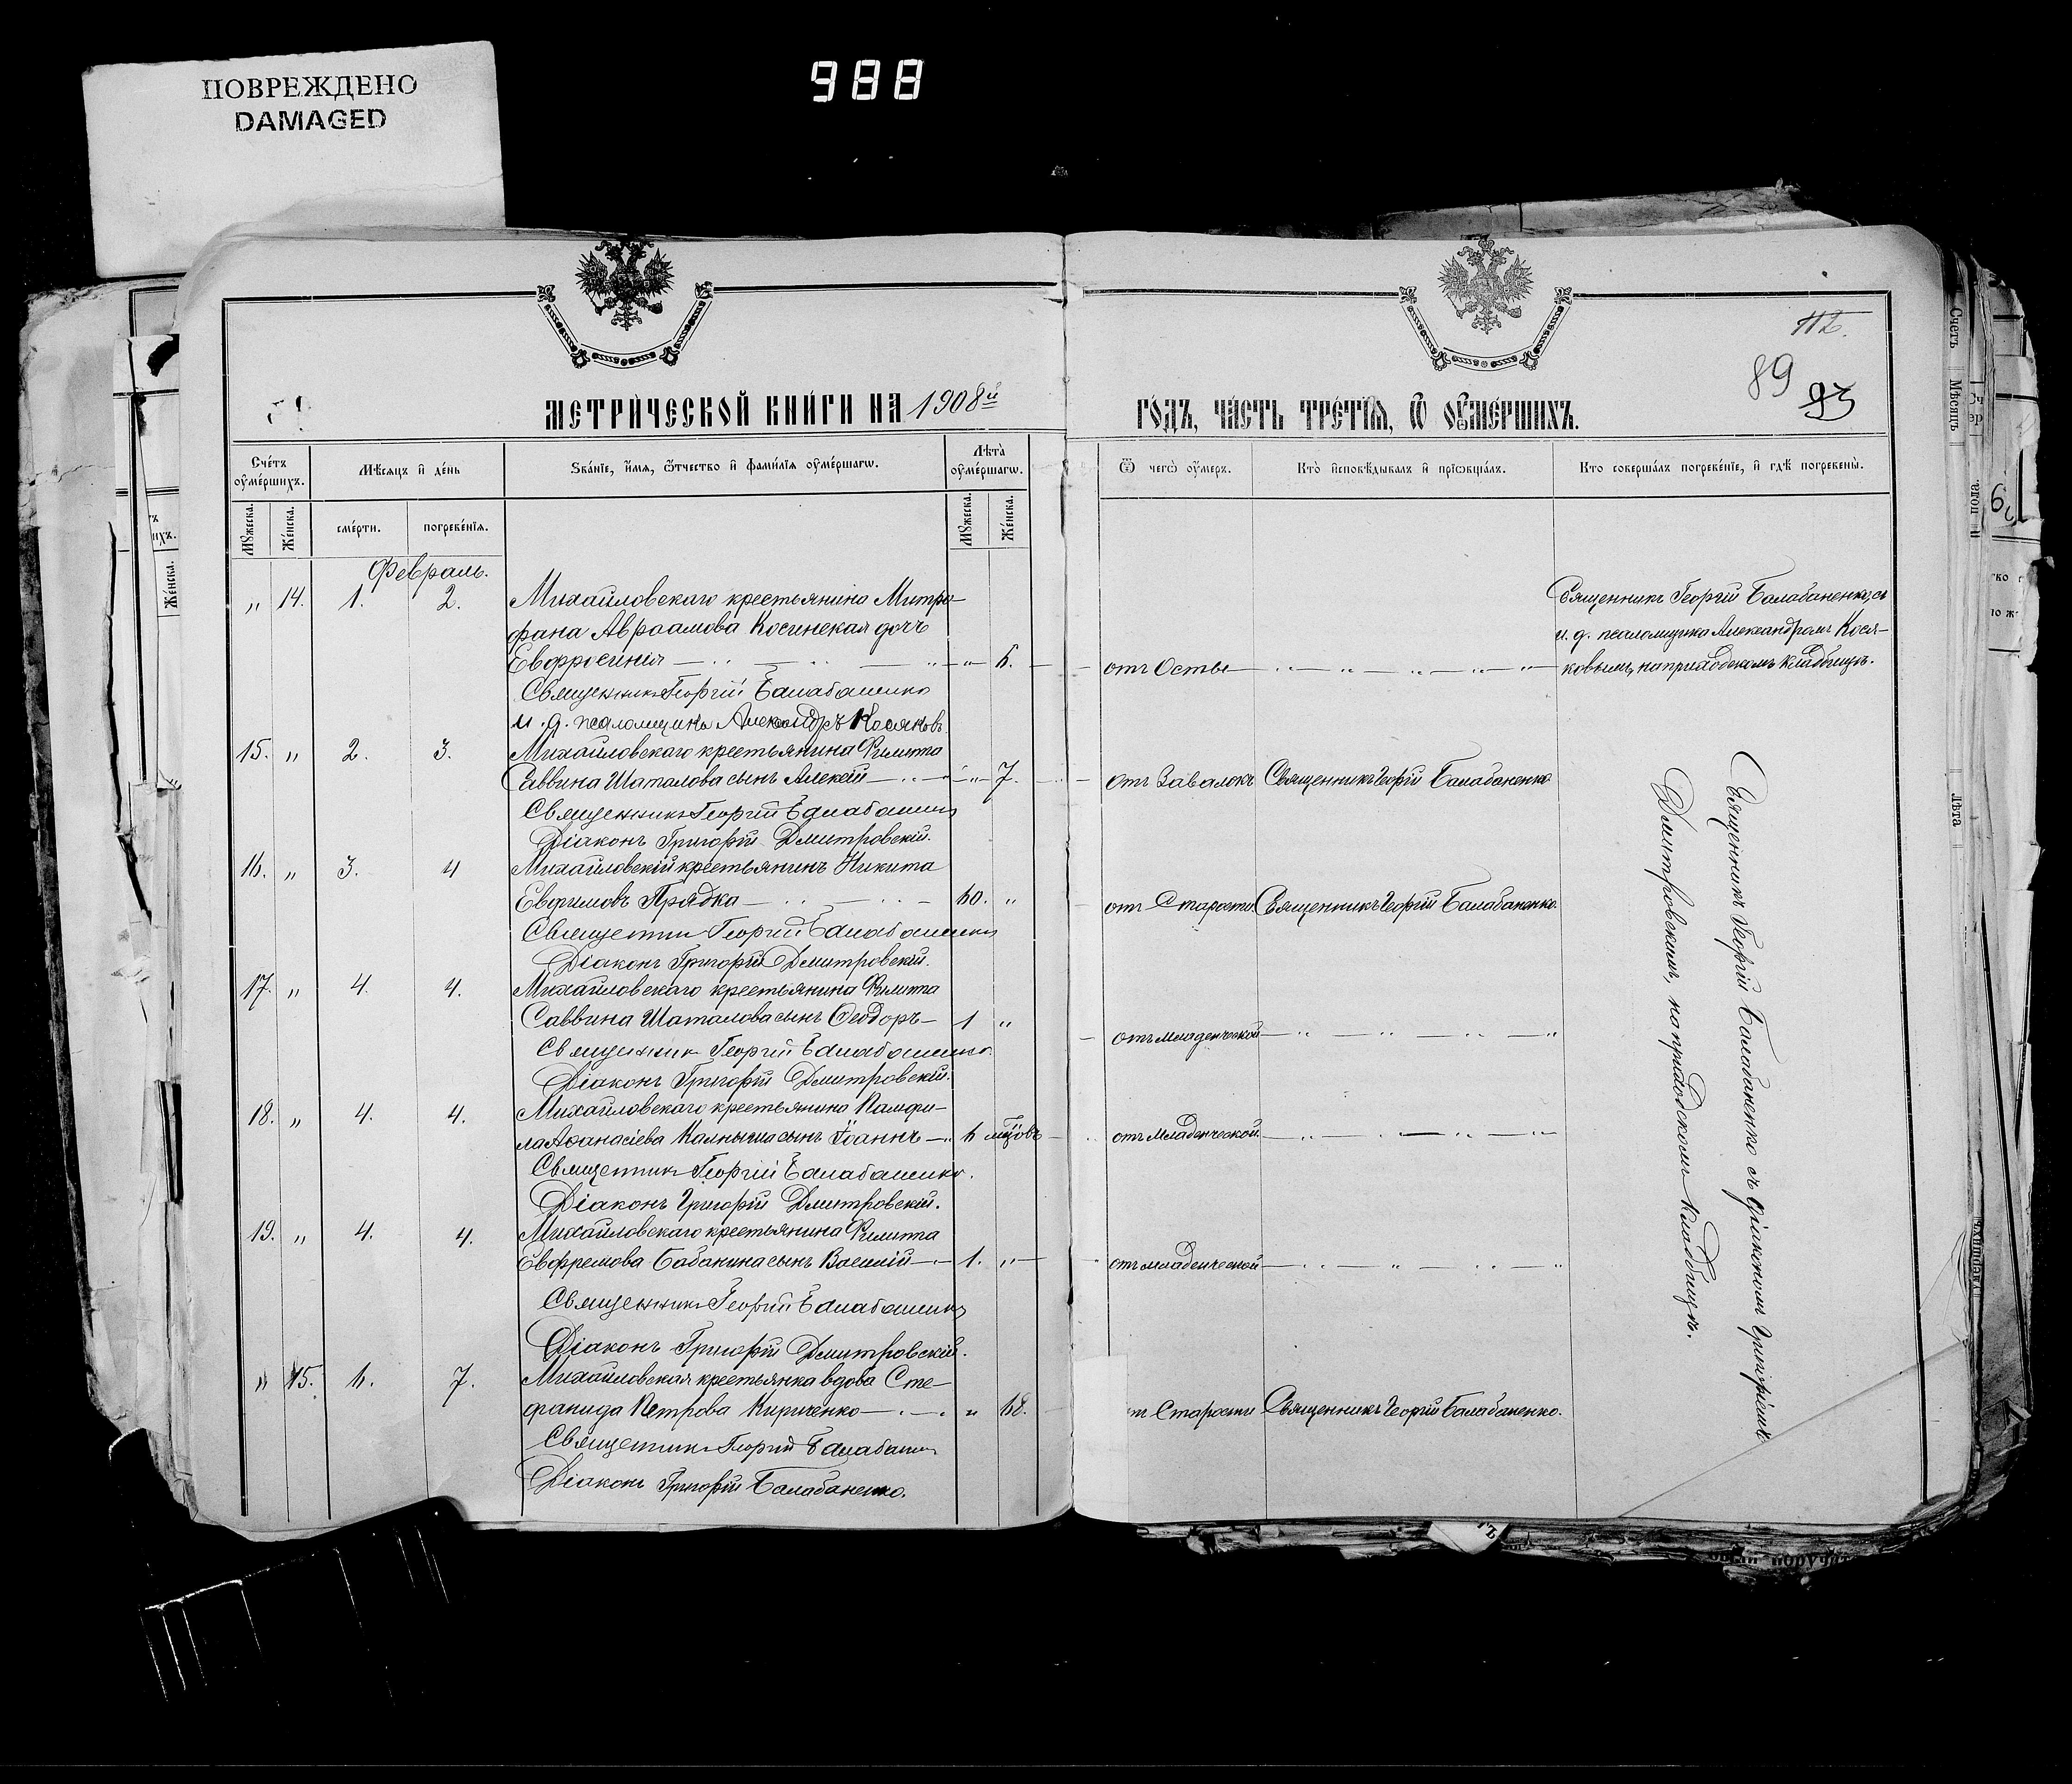 ПОВРЕЖДЕНО
DAMAGED
988
МЕТРИЧЕСКОЙ КНИГИ НА 1908й
ГОДЪ, ЧАСТЬ ТРЕТІЯ, Ѿ ОУМЕРШИХЪ.
112.
89
93
Счетъ оумершихъ.
Мѣсяцъ и день
Званіе, имя, ѿчество и фамилія оумершагѡ.
Лѣта оумершагѡ.
Ѿ чегѡ оумеръ.
Кто исповѣдывалъ и пріѡбщалъ.
Кто совершалъ погребеніе, и гдѣ погребены.
Мужеска.
Женска.
смерти.
погребенія.
Мужеска.
Женска.
Февраль.
„ 14. 1. 2. Михайловскаго крестьянина Митро-
фана Авраамова Косинская дочь
Евфросинія — „ 6. отъ Осты
Священникъ Георгій Балабаненко
и. д. псаломщика Александръ Косяковъ
Священникъ Георгій Балабаненко, съ
и. д. псаломщика Александромъ Кося-
ковымъ, на приходскомъ кладбищѣ.
15. „ 2. 3. Михайловскаго крестьянина Филиппа
Саввина Шаталова сынъ Алексій — „ 7. отъ Завалокъ Священникъ Георгій Балабаненко
Священникъ Георгій Балабаненко
Діаконъ Григорій Дмитровскій.
16. „ 3. 4 Михайловскій крестьянинъ Никита
Евфимовъ Прядка — 60. „ отъ Старости Священникъ Георгій Балабаненко.
Священникъ Георгій Балабаненко
Діаконъ Григорій Дмитровскій.
17. „ 4. 4. Михайловскаго крестьянина Филиппа
Саввина Шаталова сынъ Ѳеодоръ — 1 „ отъ младенческой
Священникъ Георгій Балабаненко.
Діаконъ Григорій Дмитровскій.
18. „ 4. 4. Михайловскаго крестьянина Памфи-
ла Аѳанасіева Калныша сынъ Іоаннъ — 6 мцовъ отъ младенческой
Священникъ Георгій Балабаненко.
Діаконъ Григорій Дмитровскій.
19. „ 4. 4. Михайловскаго крестьянина Филиппа
Евфремова Бабакина сынъ Василій — 1. „ отъ младенческой
Священникъ Георгій Балабаненко
Діаконъ Григорій Дмитровскій.
„ 15. 6. 7. Михайловская крестьянка вдова Сте-
фанида Петрова Кириченко — „ 68. Старости Священникъ Георгій Балабаненко.
Священникъ Георгій Балабаненко
Діаконъ Григорій Балабаненко.
Священникъ Георгій Балабаненко съ діакономъ Григоріемъ
Дмитровскимъ, на приходскомъ кладбищѣ.
Счетъ
Мѣсяцъ
Лѣта
Женска.